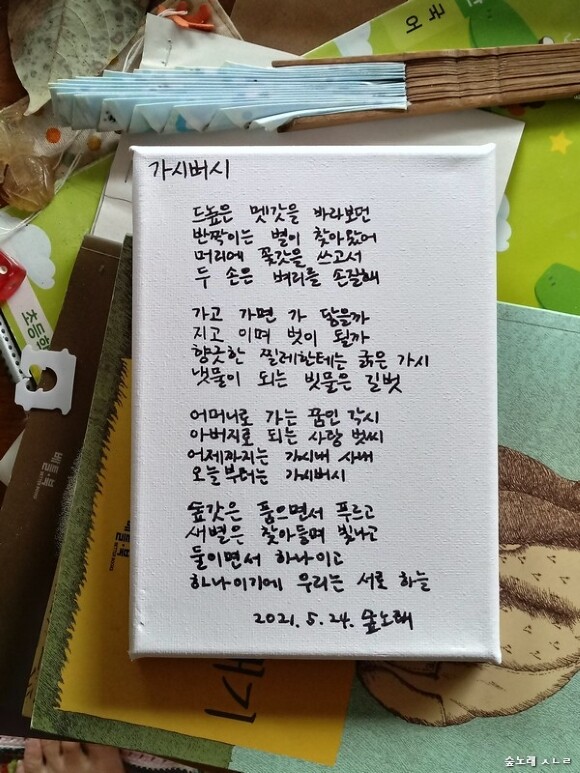 국어
초등한
베틀·북
가시버시
드높은 멧갓을 바라보던
반짝이는 별이 찾아왔어
머리에 꽃갓을 쓰고서
두 손은 벼리를 손질해
가고 가면 가 닿을까
지고 이며 벗이 될까
향긋한 찔레한테는 굵은 가시
냇물이 되는 빗물은 길벗
어머니로 가는 품인 각시
아버지로 되는 사랑 벗씨
어제까지는 가시내 사내
오늘부터는 가시버시
숲갓은 품으면서 푸르고
새별은 찾아들며 빛나고
둘이면서 하나이고
하나이기에 우리는 서로 하늘
2021. 5. 24. 숲노래
숲노래 ㅅㄴㄹ